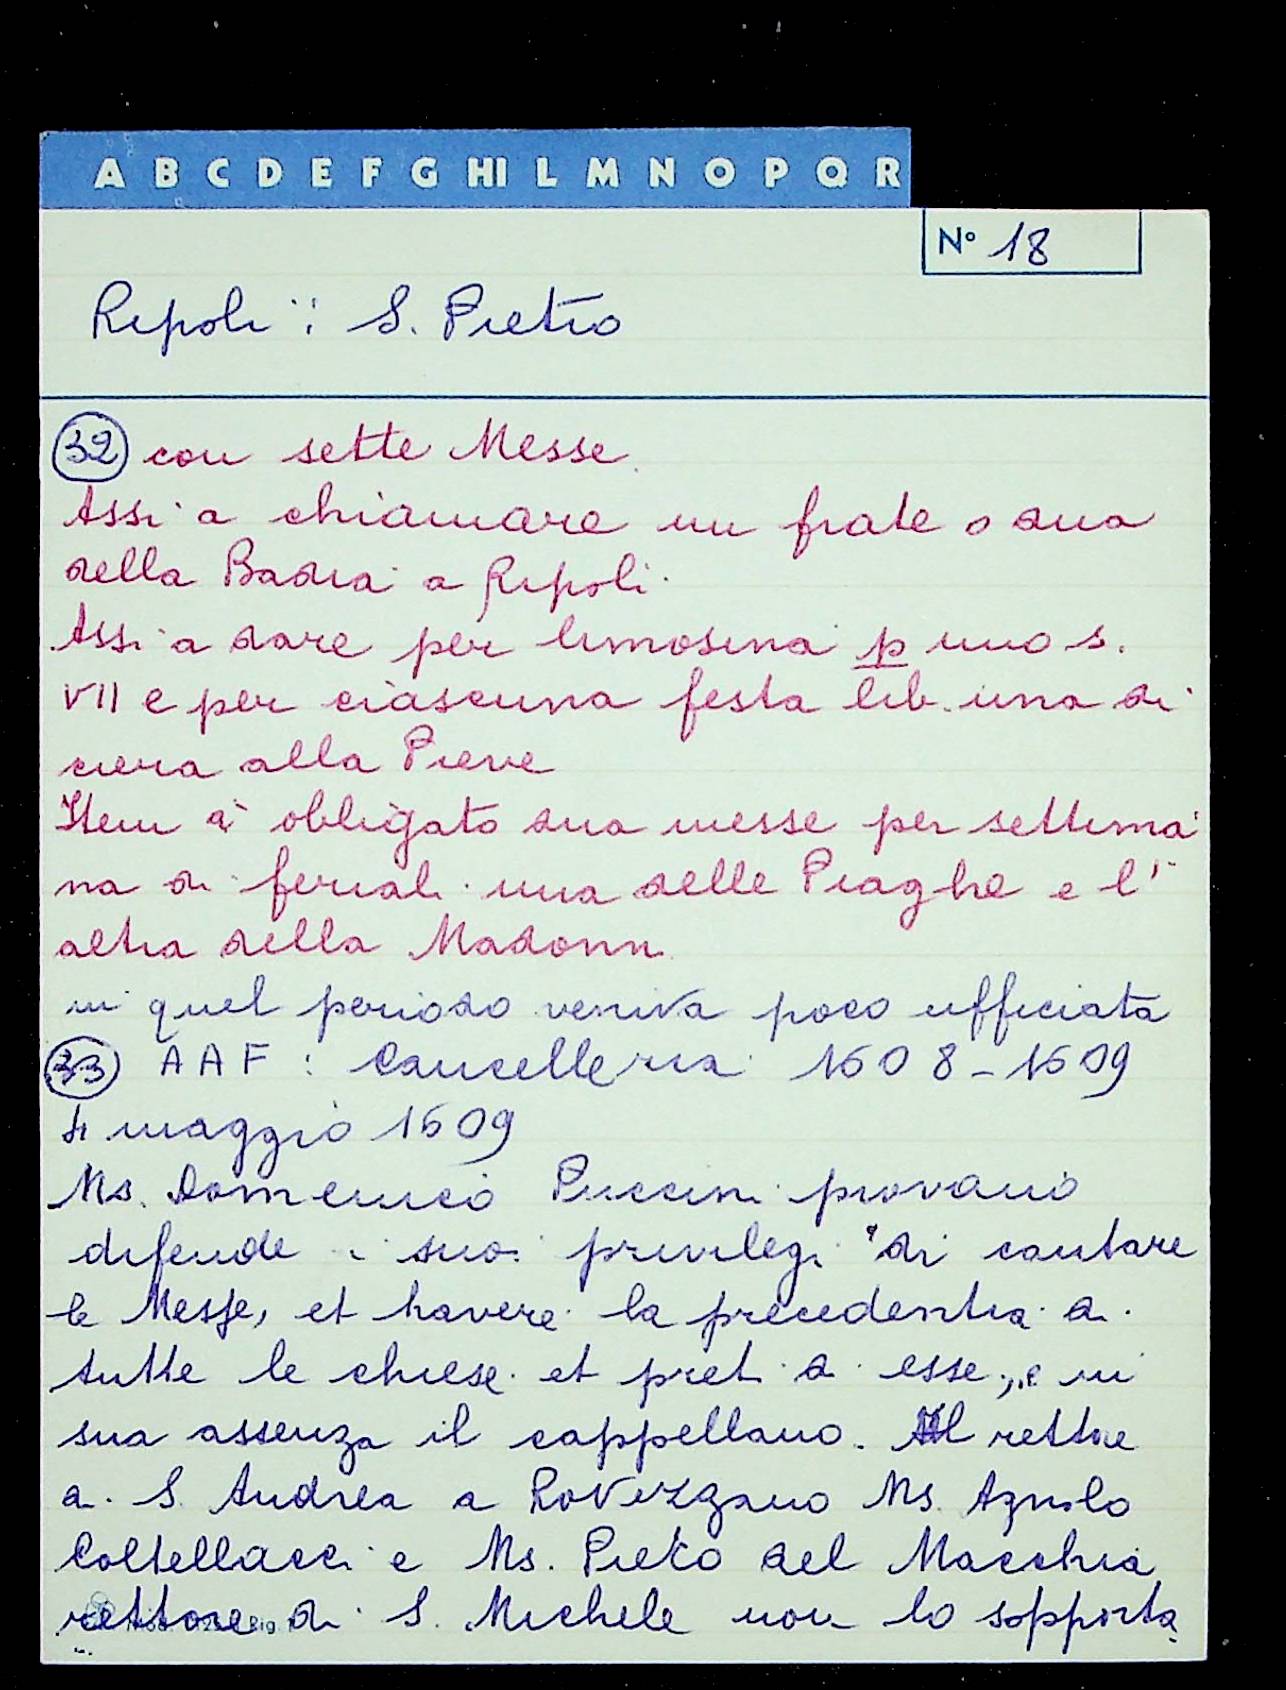 A B C D E F G HI L M N O P Q R
N° 18
Ripoli: S. Pietro
32 con sette Messe
Assi a chiamare un frate o dua
della Badia a Ripoli
Assi a dare per limosina p uno s.
VII e per ciascuna festa lib. una di
ciera alla Pieve
Item à obligato dua messe per settima
na di feriali una delle Piaghe e l'
altra della Madonn
in quel periodo veniva poco ufficiata
33 AAF: Cancelleria 1608-1609
4 maggio 1609
Ms. Domenico Puccini piovano
difende i suoi privilegi "di cantare
le Messe, et havere la precedentia a
tutte le chiese et preti di esse, e in
sua assenza il cappellano. Il rettore
di S. Andrea a Rovezzano Ms. Agnolo
Coltellacci e Ms. Pietro del Macchia
rettore di S. Michele non lo sopporta